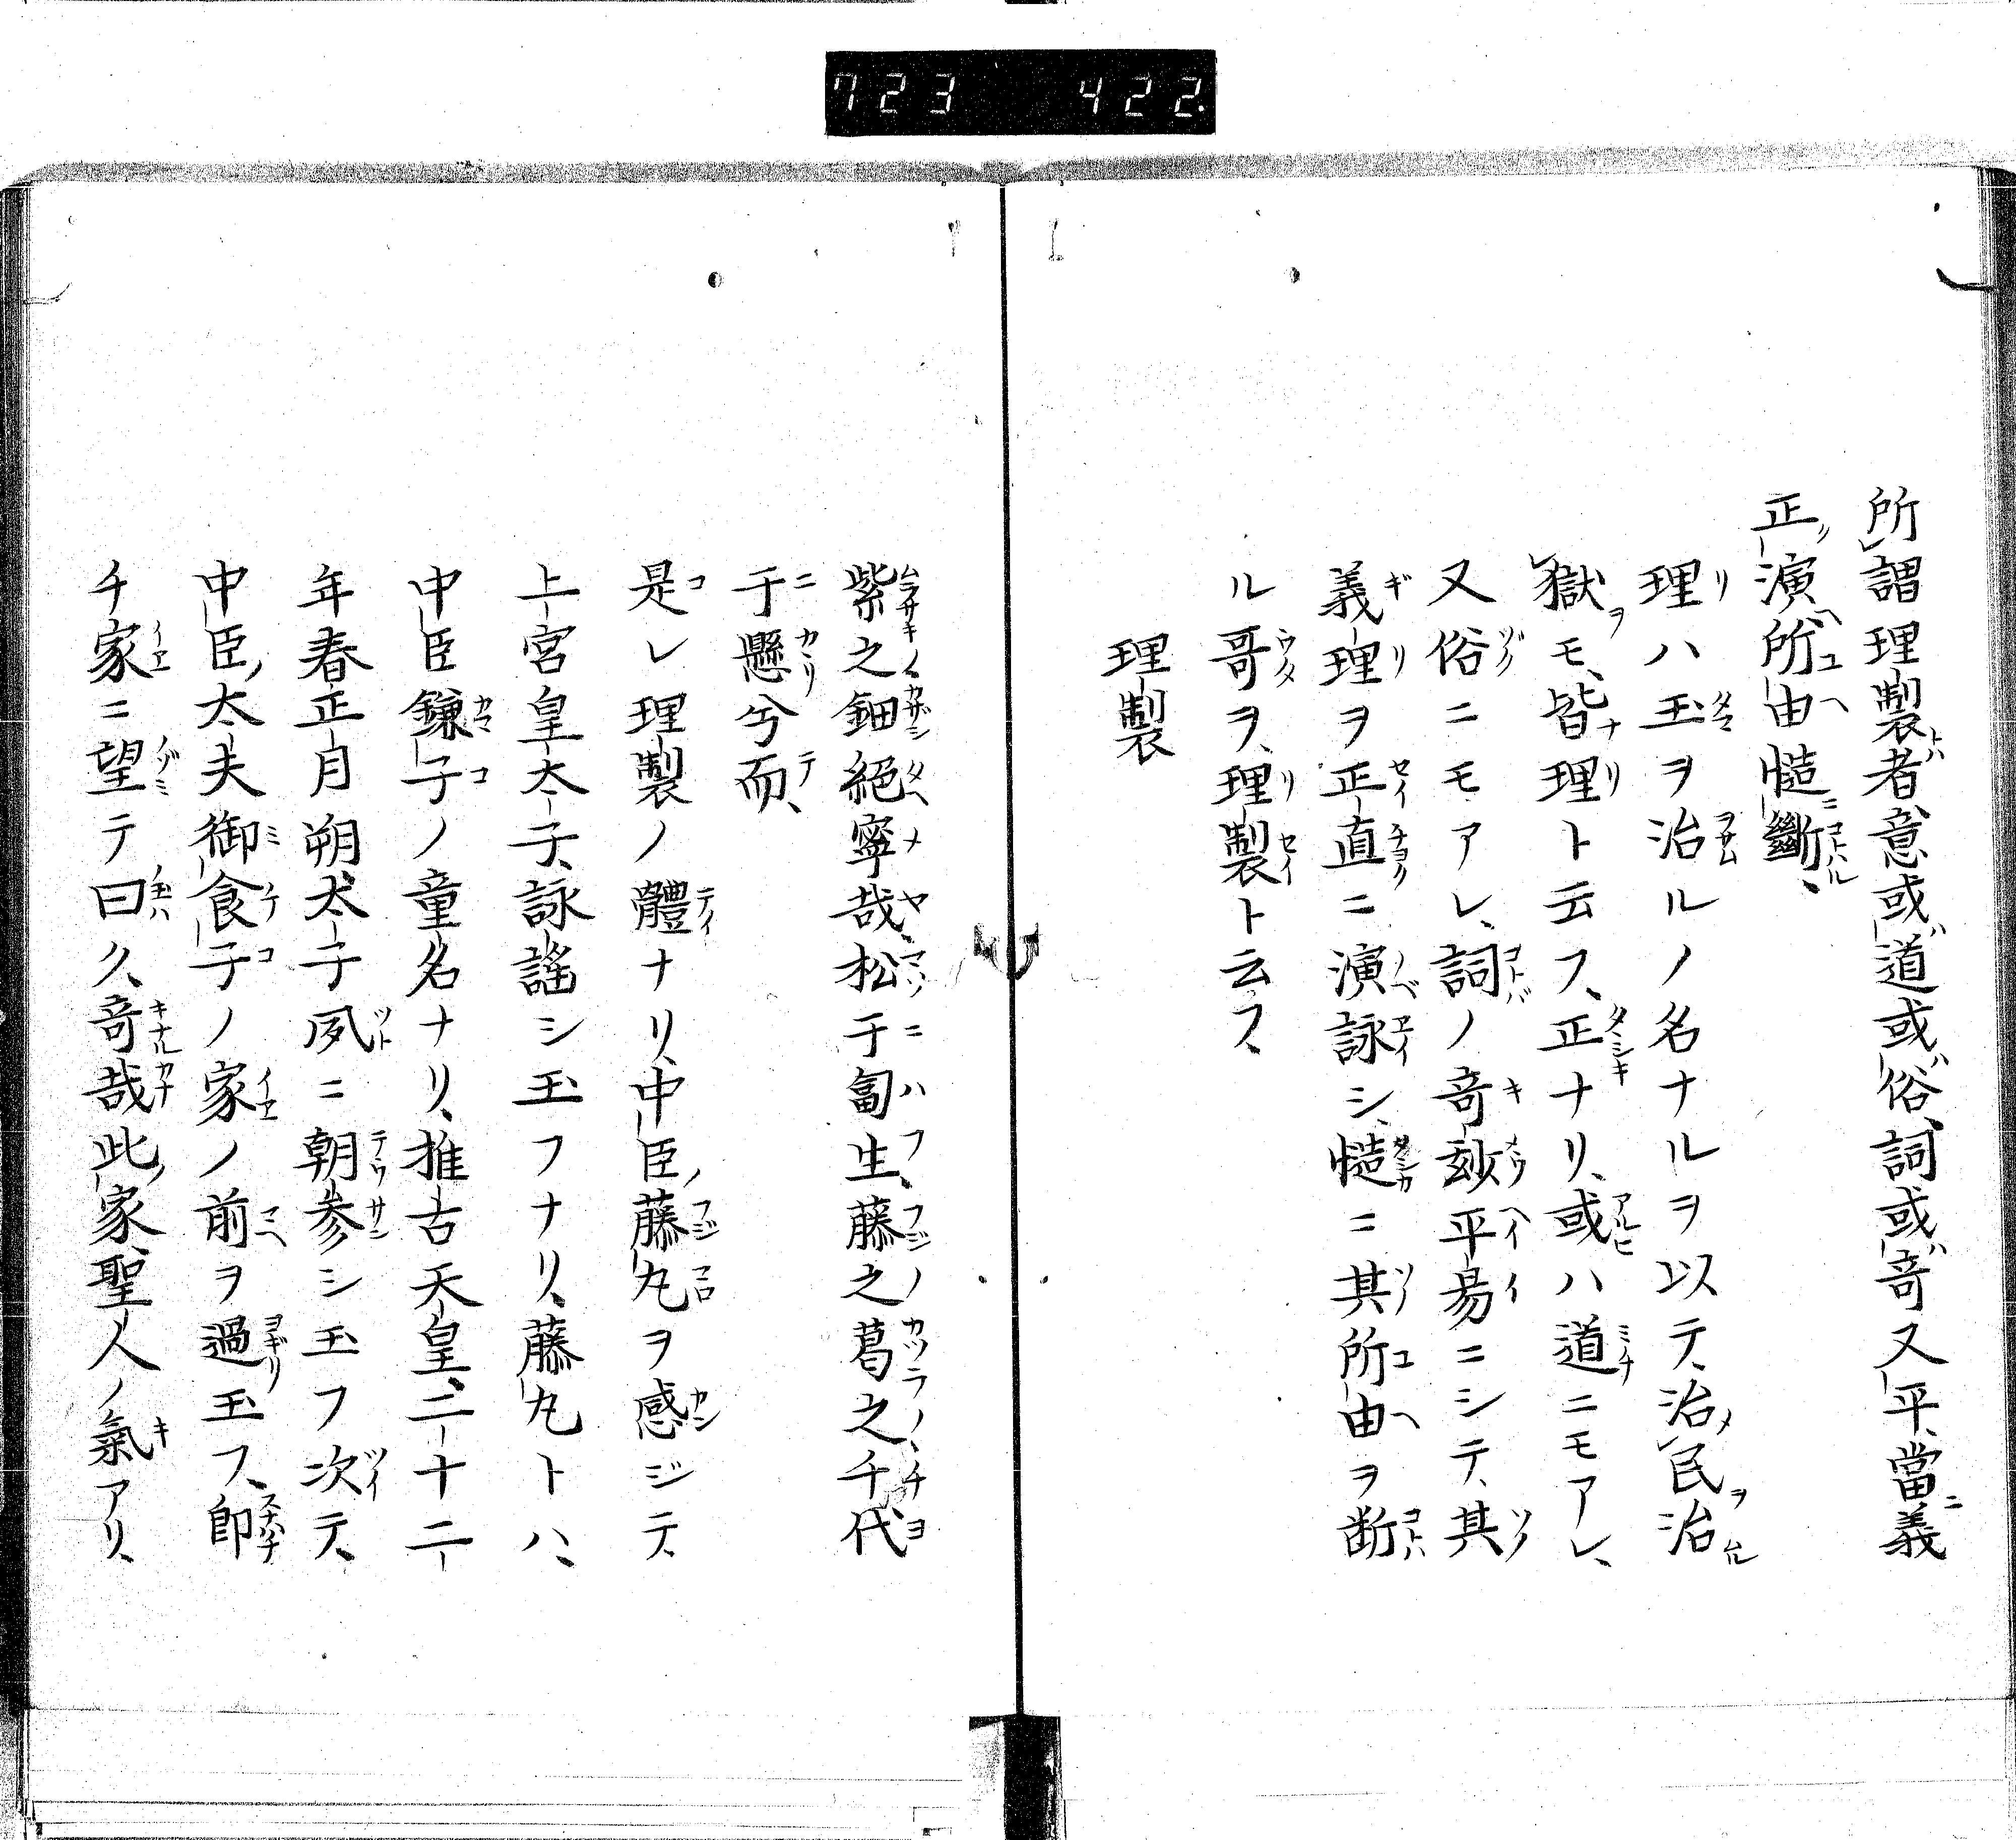 723 422.
所謂理製者意或道或俗詞或奇又平、當義
正演所由慥斷、
理ハ玉ヲ治ルノ名ナルヲ以テ、治民治
獄モ、皆理ト云フ、正ナリ、或ハ道ニモアレ、
又俗ニモアレ、詞ノ奇玅平易ニシテ、其
義理ヲ正直ニ演詠シ、慥ニ其所由ヲ断
ル哥ヲ、理製ト云フ、
理製
紫之鈿絕寧哉、松于匐生、藤之葛之、千代
于懸兮而、
是レ理製ノ體ナリ、中臣藤丸ヲ感ジテ、
上宮皇太子、詠謠シ玉フナリ、藤丸トハ、
中臣鎌子ノ童名ナリ、推古天皇、二十二
年春正月朔太子夙ニ朝参シ玉フ次テ、
中臣太夫御食子ノ家ノ前ヲ過玉フ、即
チ家ニ望テ曰ク、奇哉此家、聖人ノ氣アリ、